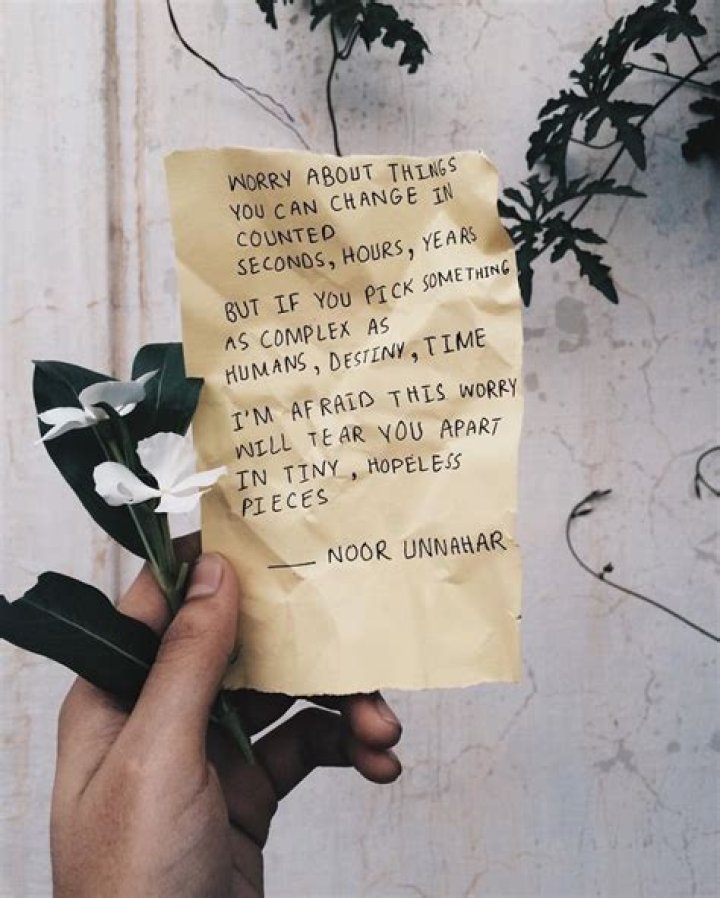 WORRY ABOUT THINGS
YOU CAN CHANGE IN
COUNTED
SECONDS, HOURS, YEARS
BUT IF YOU PICK SOMETHING
AS COMPLEX AS
HUMANS, DESTINY, TIME
I'M AFRAID THIS WORRY
WILL TEAR YOU APART
IN TINY, HOPELESS
PIECES
— NOOR UNNAHAR